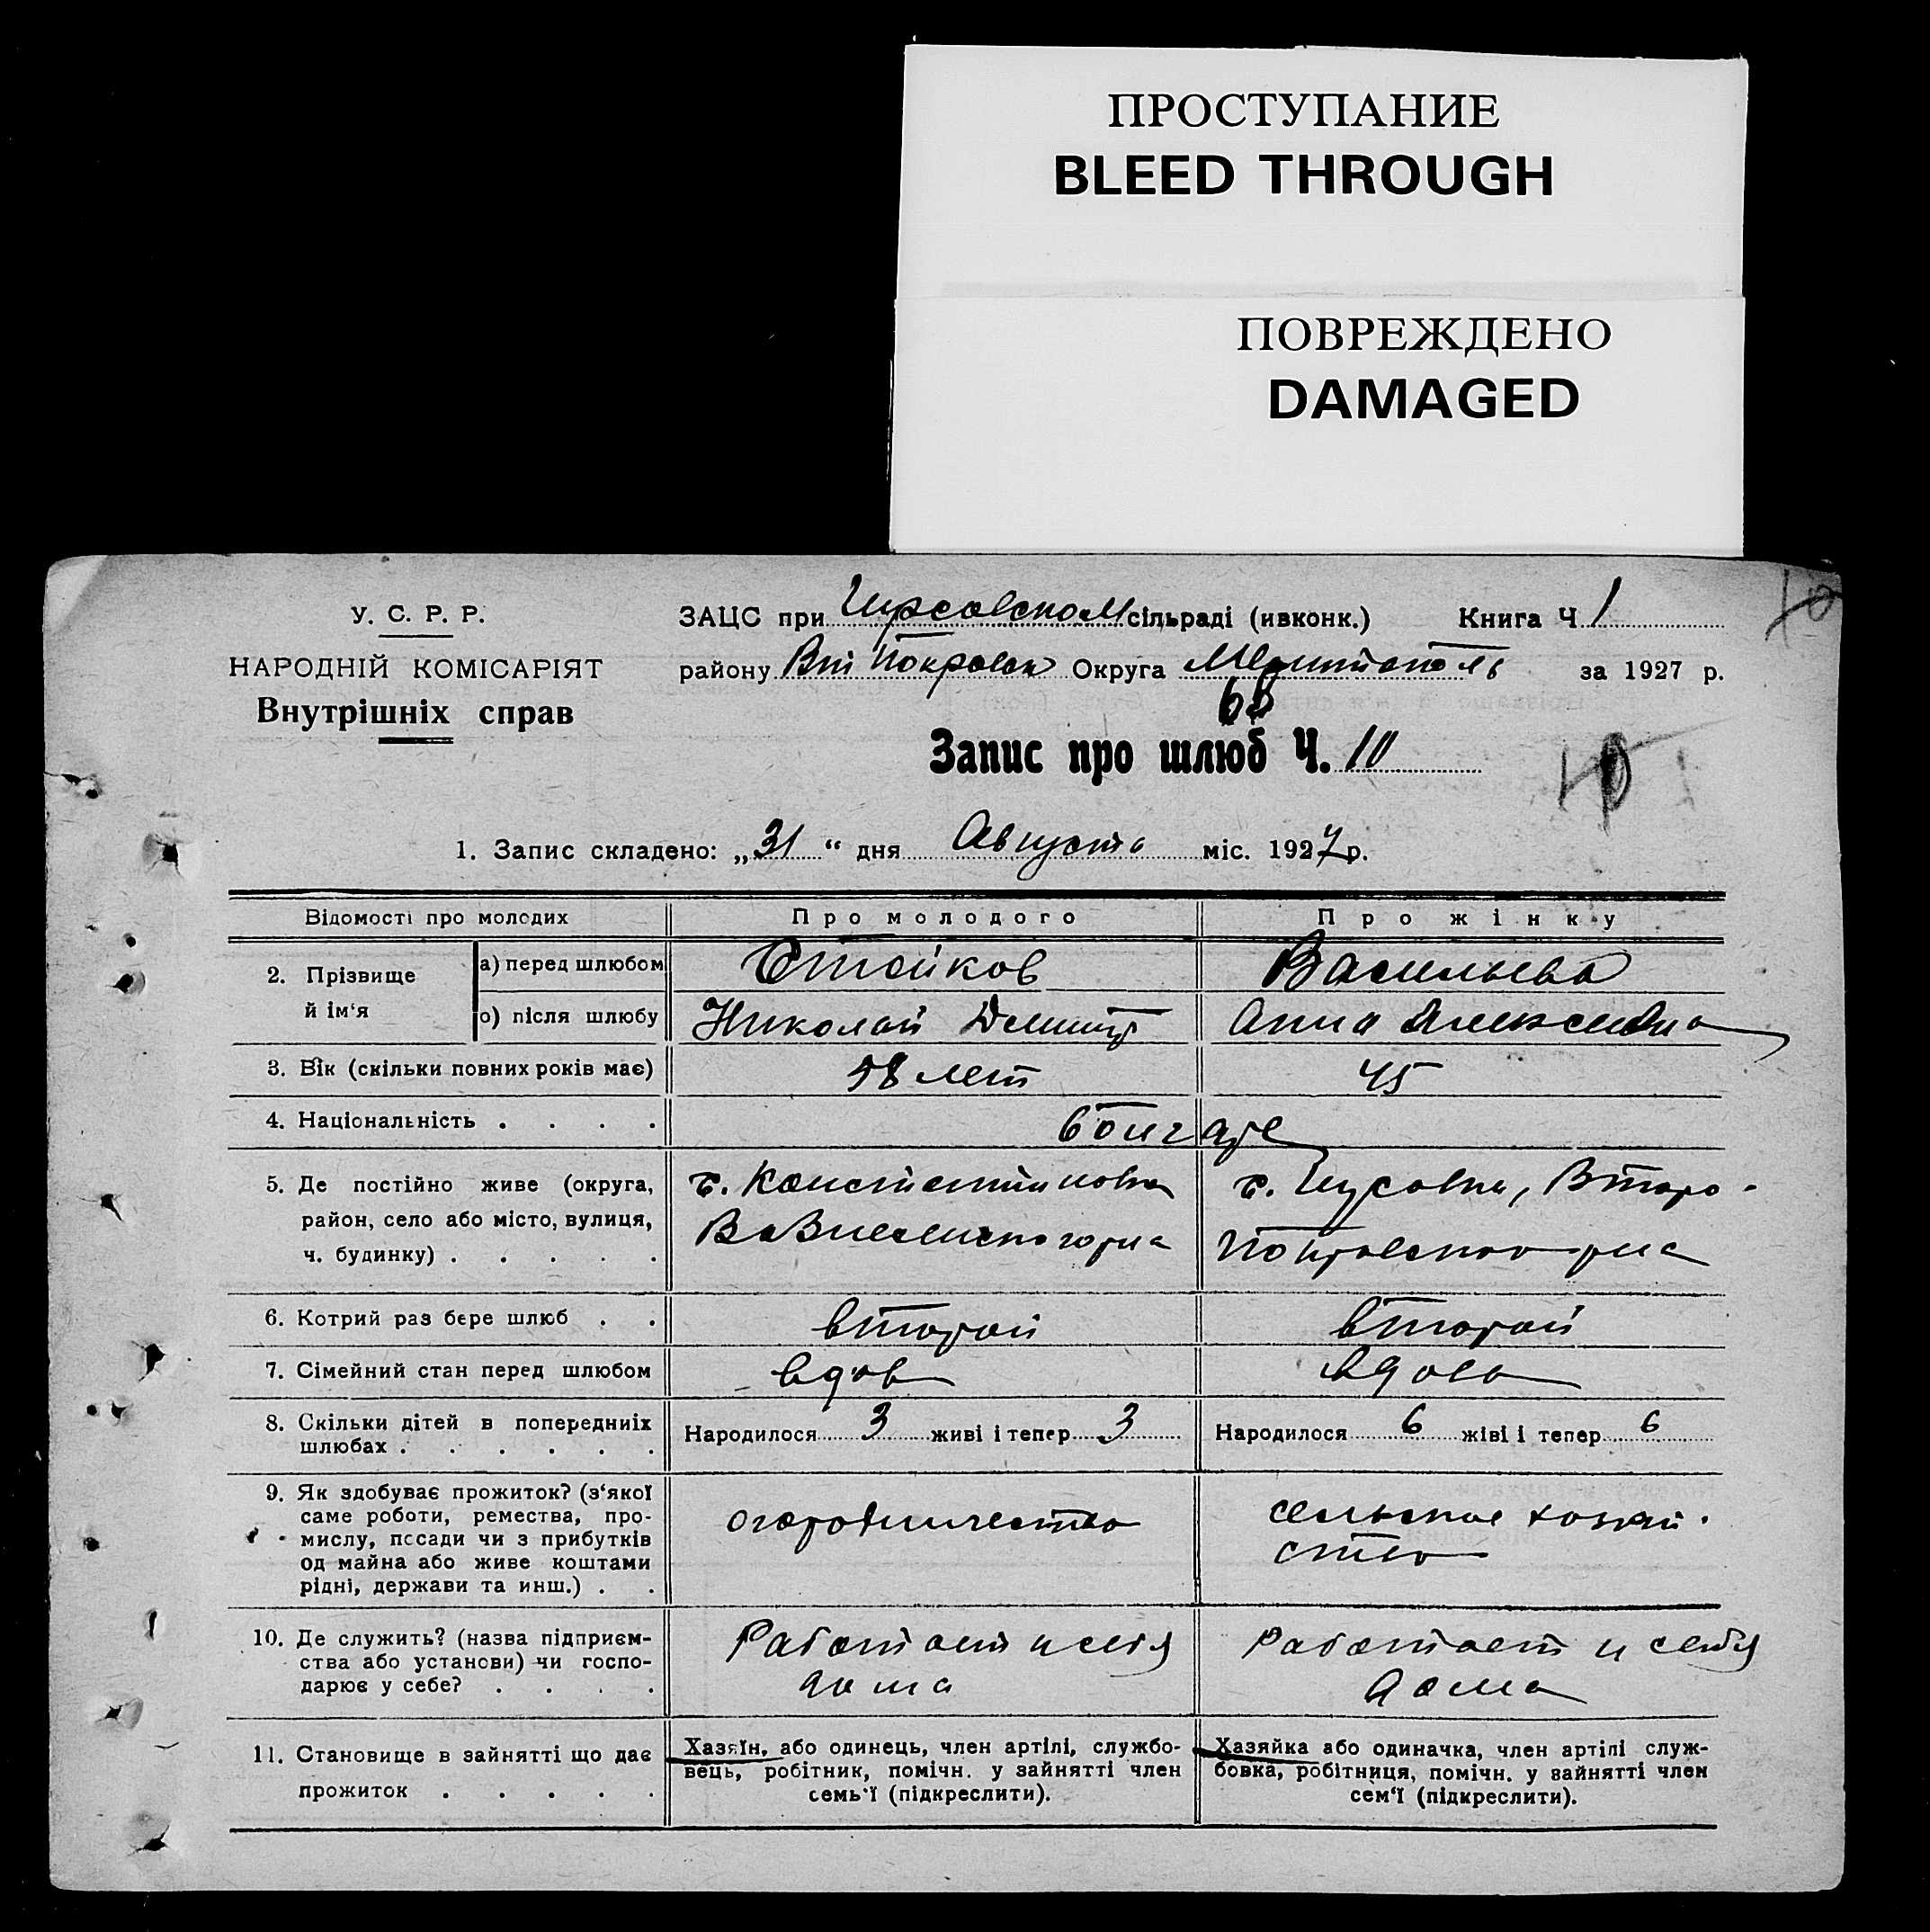 ПРОСТУПАНИЕ
BLEED THROUGH
ПОВРЕЖДЕНО
DAMAGED
У. С. Р. Р.
НАРОДНІЙ КОМІСАРІЯТ
Внутрішніх справ
ЗАЦС при сільраді (ивконк.) Книга Ч 1
району Вт Покровск Округа за 1927 р.
Запис про шлюб Ч. 10
1. Запис складено: „31“ дня Августа міс. 1927 р.
Відомості про молодих Про молодого Про жінку
2. Прізвище й ім‘я
а) перед шлюбом Стойков Васильева
о) після шлюбу Николай Дмитр Анна
3. Вік (скільки повних років має) 58 лет 45
4. Національність . . . . болгаре
5. Де постійно живе (округа, с. Константиновка
район, село або місто, вулиця,
ч. будинку) . . . . .
6. Котрий раз бере шлюб . . второй второй
7. Сімейний стан перед шлюбом вдов вдова
8. Скільки дітей в попередниіх Народилося 3 живі і тепер 3 Народилося 6 жіві і тепер 6
шлюбах . . . . . .
9. Як здобуває прожиток? (з‘якої
саме роботи, ремества, про- огородничество сельское хозяй-
мислу, посади чи з прибутків ство
од майна або живе коштами
рідні, держави та инш.) . .
10. Де служить? (назва підприєм- Работает у себя Работает у себя
ства або установи) чи госпо- дома дома
дарює у себе? . . . .
11. Становище в зайнятті що дає
прожиток . . . . .
Хазяїн, або одинець, член артілі, службо-
вець, робітник, помічн. у зайнятті член
семь‘ї (підкреслити).
Хазяйка або одиначка, член артілі служ-
бовка, робітниця, помічн. у зайнятті член
сем‘ї (підкреслити).